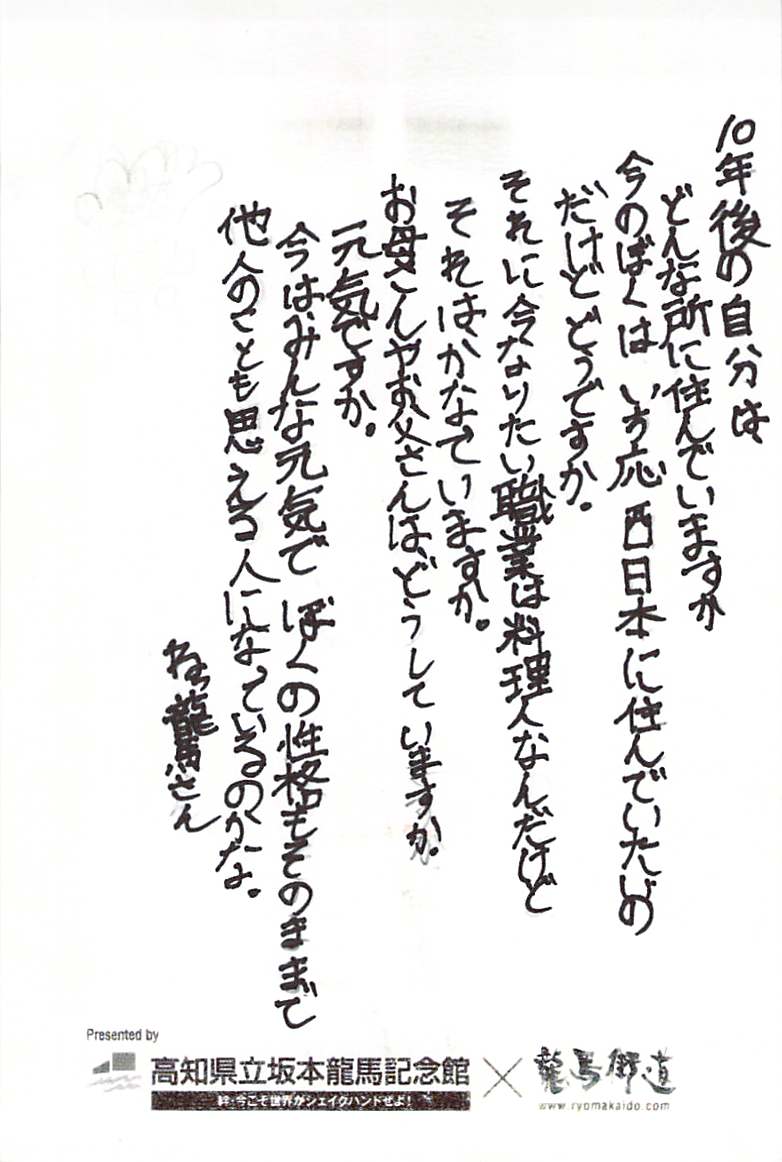 10年後の自分は、
どんな所に住んでいますか
今のぼくは いち応 西日本に住んでいたいの
だけど どうですか。
それに今なりたい職業は料理人なんだけど
それは、かなていますか。
お母さんやお父さんは、どうして いますか。
元気ですか。
今は、みんな元気で ぼくの性格もそのままで
他人のことも思える人になっているのかな。
ねっ龍馬さん
Presented by
高知県立坂本龍馬記念館
絆・今こそ世界がシェイクハンドせよ！
×
龍馬街道
www.ryomakaido.com